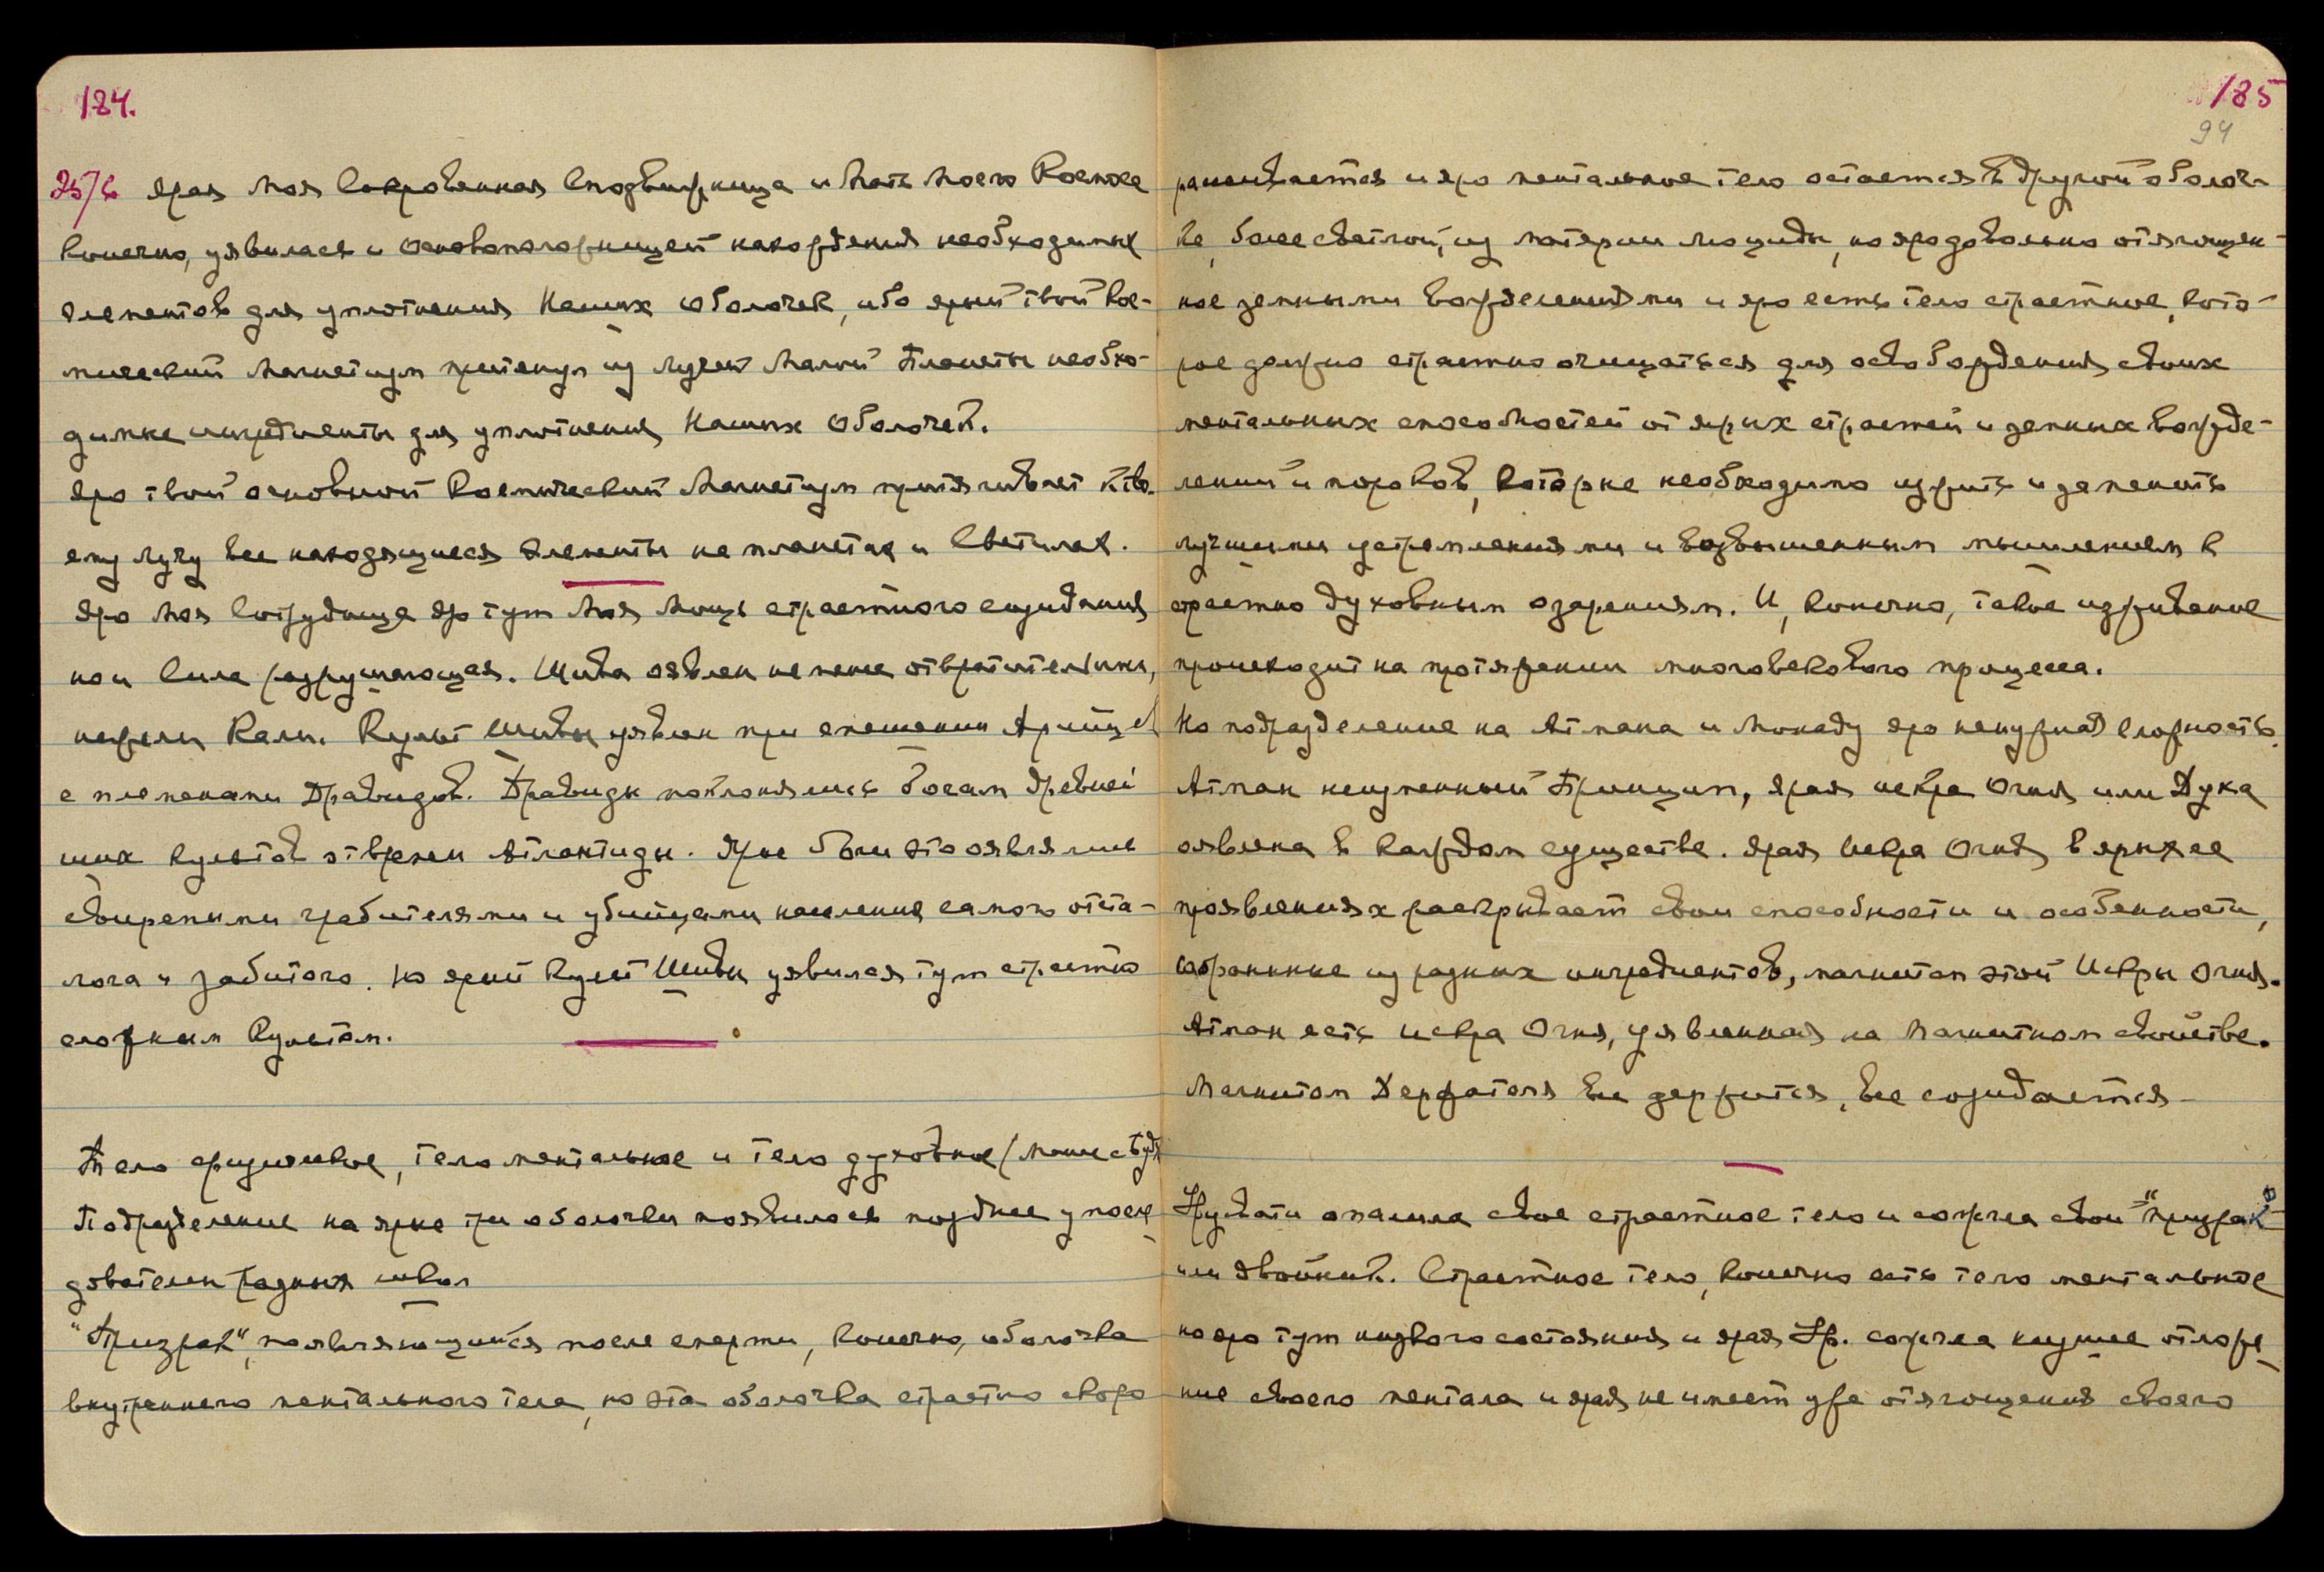 184.
25/6 Ярая Моя Сокровенная Сподвижница и Мать Моего Космоса
конечно, уявилась и Основоположницей нахождения необходимых
элементов для уплотнения Наших Оболочек, ибо ярый твой Кос-
мический Магнетизм притянул из лучей Малой Планеты необхо-
димые ингредиенты для уплотнения Наших Оболочек.
Яро твой основной Космический Магнетизм притягивает к тво-
ему лучу все находящиеся элементы на планетах и Светилах.
Яро Моя Сотрудница яро тут Моя Мощь страстного созидания
но и Сила разрушающая. Шива оявлен не менее отвратительным,
нежели Кали. Культ Шивы уявлен при смешении Арийцев
с племенами Дравидов. Дравиды поклонялись богам древней
ших культов от времен Атлантиды. Ярые были это оявлялись
свирепыми грабителями и убийцами населения самого отста-
лого и забитого. Но ярый Культ Шивы уявился тут страстно
сложным Культом.
Тело физическое, тело ментальное и тело духовное (Манас с Будхи
Подразделение на ярые три оболочки появилось позднее у после
дователей разных школ
"Призрак", появляющийся после смерти, конечно, оболочка
внутреннего ментального тела, но эта оболочка страстно скоро
185
94
рассеивается и яро ментальное тело остается в другой оболоч-
ке, более светлой, из материи Люциды, но яро довольно отягощен-
ное земными вожделениями и яро есть тело страстное, кото-
рое должно страстно очищаться для освобождения своих
ментальных способностей от ярых страстей и земных вожде-
лений и пороков, которые необходимо изжить и заменить
лучшими устремлениями и возвышенным мышлением к
страстно духовным озарениям. И, конечно, такое изживание
происходит на протяжении многовекового процесса.
Но подразделение на Атмана и Монаду яро ненужная сложность.
Атман неизменный Принцип, ярая искра Огня или Духа
оявлена в каждом существе. Ярая Искра Огня в ярых ее
проявлениях раскрывает свои способности и особенности,
собранные из разных ингредиентов, магнитом этой Искры Огня.
Атман есть искра Огня, уявленная на Магнитном свойстве.
Магнитом Держателя все держится, все созидается
Урувати опалила свое страстное тело и сожгла свой "призрак"
или двойник. Страстное тело, конечно есть тело ментальное
но яро тут низкого состояния и ярая Ур. сожгла низшее отложе
ние своего ментала и ярая не имеет уже отягощения своего